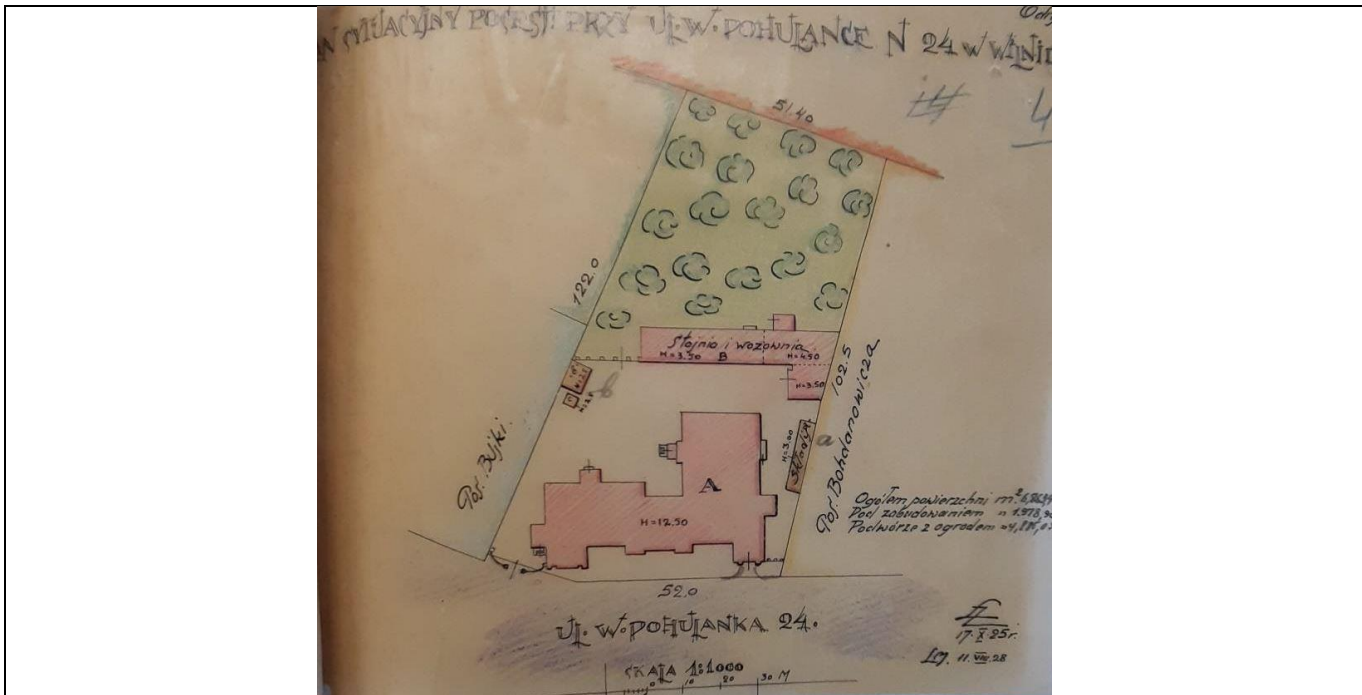 SYTUACYJNY POSESJI PRZY UL. W. POHULANCE N 24 W WILNIE
51.40
122.0
Stajnia i wozownia
H=3.50 B H=4.50
H=3.50
102.5
b
Pos. Bujki.
A
H=12.50
H=3.00
Składzik
a
Pos. Bohdanowicza
Ogółem powierzchni m²
Pod zabudowaniem
Podwórze z ogrodem
52.0
UL. W. POHULANKA 24.
17.X.25r.
11.VIII.28
SKALA 1:1000
0 10 20 30 M